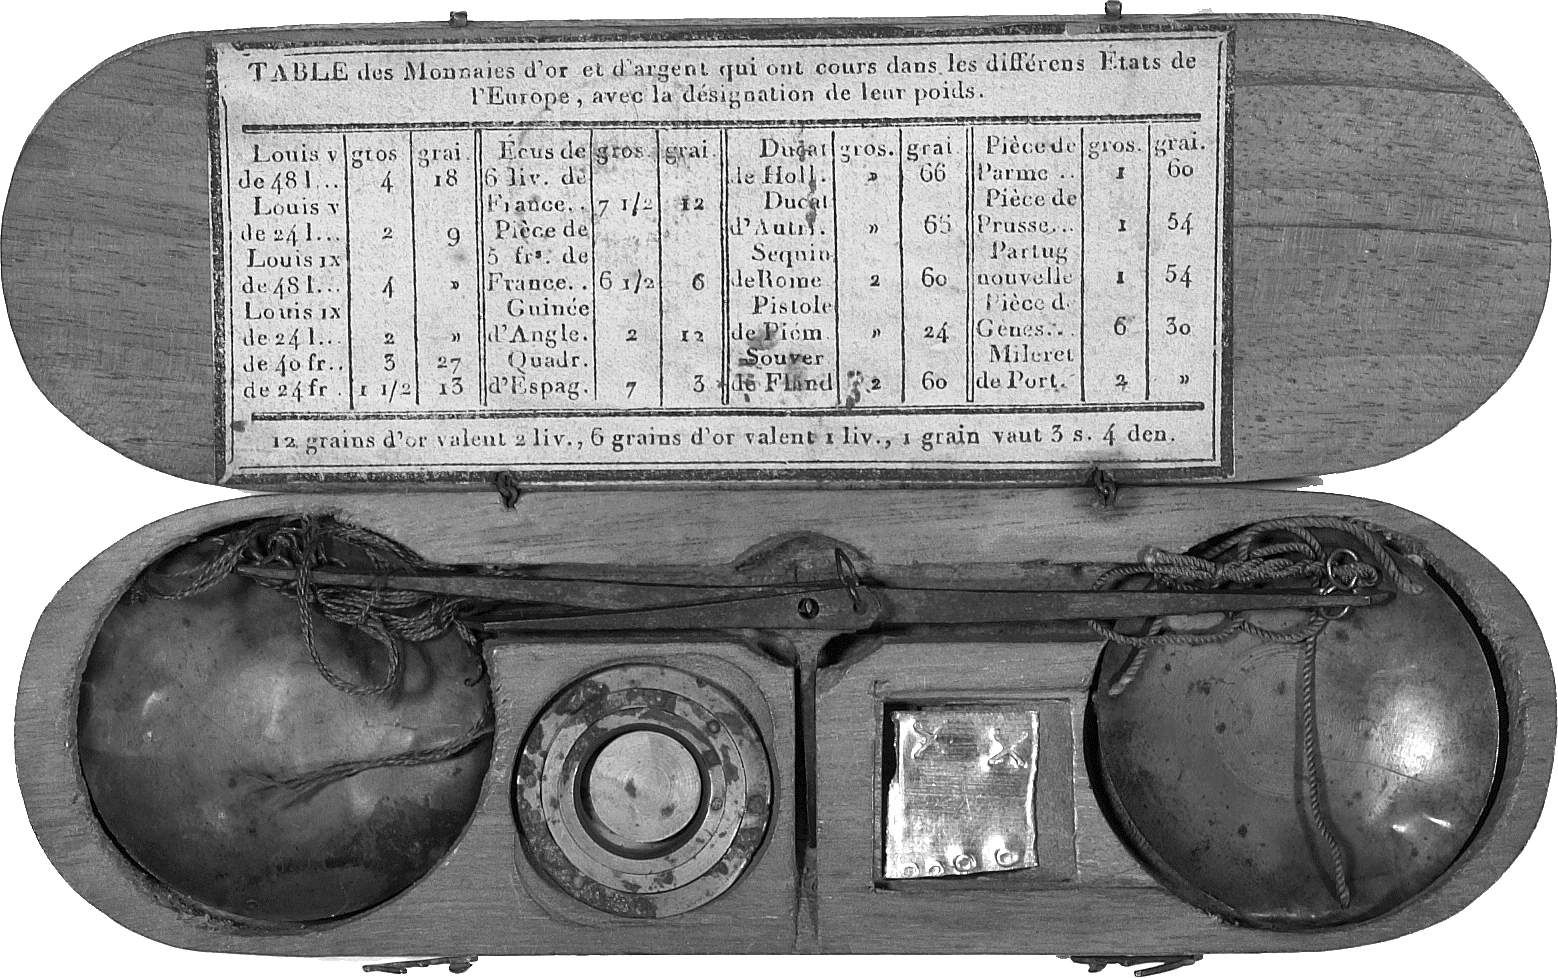 TABLE des Monnaies d'or et d'argent qui ont cours dans les différens États de
l'Europe, avec la désignation de leur poids.
Louis v gros grai. Écus de gros. grai. Ducat gros. grai. Pièce de gros. grai.
de 48 l... 4 18 6 liv. de de Holl. » 66 Parme .. 1 60
Louis v France.. 7 1/2 12 Ducat Pièce de
de 24 l... 2 9 Pièce de d'Autri. » 65 Prusse... 1 54
Louis ix 5 frs. de Sequin Partug
de 48 l... 4 » France.. 6 1/2 6 de Rome 2 60 nouvelle 1 54
Louis ix Guinée Pistole Pièce de
de 24 l... 2 » d'Angle. 2 12 de Piém. » 24 Genes... 6 30
de 40 fr.. 3 27 Quadr. Souver Mileret
de 24 fr. 1 1/2 13 d'Espag. 7 3 de Fland 2 60 de Port. 2 »
12 grains d'or valent 2 liv., 6 grains d'or valent 1 liv., 1 grain vaut 3 s. 4 den.